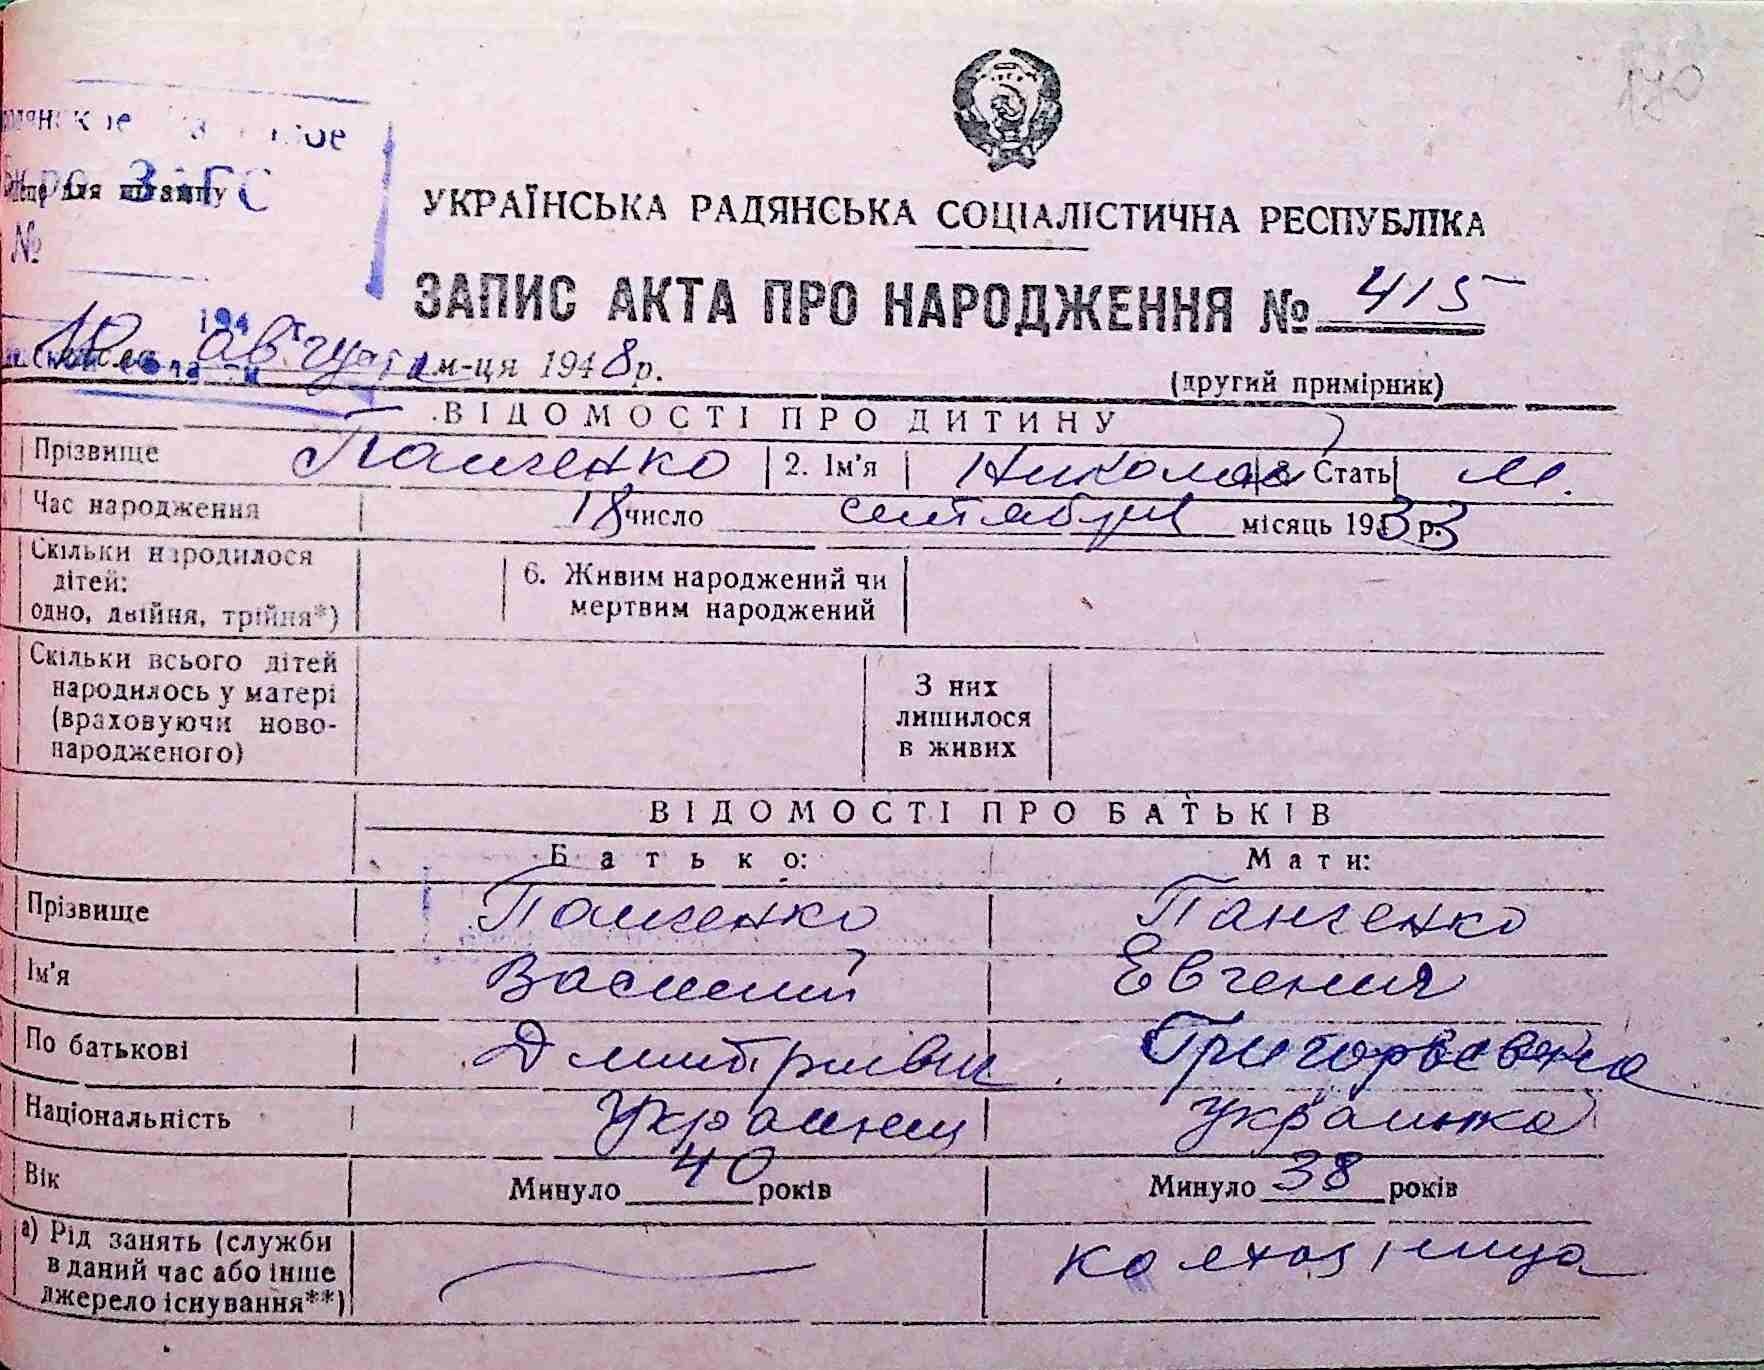 170
ЗАГС
№
УКРАЇНСЬКА РАДЯНСЬКА СОЦІАЛІСТИЧНА РЕСПУБЛІКА
ЗАПИС АКТА ПРО НАРОДЖЕННЯ № 415
10 августа м-ця 1948 р.
(другий примірник)
ВІДОМОСТІ ПРО ДИТИНУ
Прізвище Панченко 2. Ім'я Николай Стать М.
Час народження 18 число сентября місяць 1933 р.
Скільки народилося
дітей:
одно, двійня, трійня*)
6. Живим народжений чи
мертвим народжений
Скільки всього дітей
народилось у матері
(враховуючи ново-
народженого)
З них
лишилося
в живих
ВІДОМОСТІ ПРО БАТЬКІВ
Батько: Мати:
Прізвище Панченко Панченко
Ім'я Василий Евгения
По батькові Дмитриевич Григорьевна
Національність Украинец Украинка
Вік Минуло 40 років Минуло 38 років
а) Рід занять (служби
в даний час або інше
джерело існування**)
колхозница